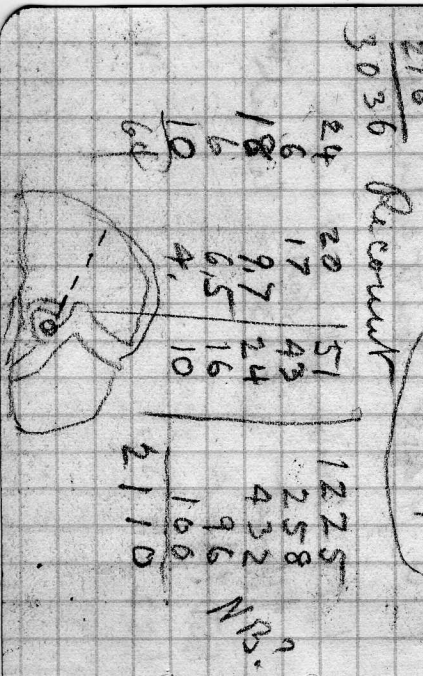 276
3036 Recount
24 20 51 1225
6 17 43 258
18 9,7 24 432
6 6,5 16 96
10 4, 10 100
64 2110
NB?